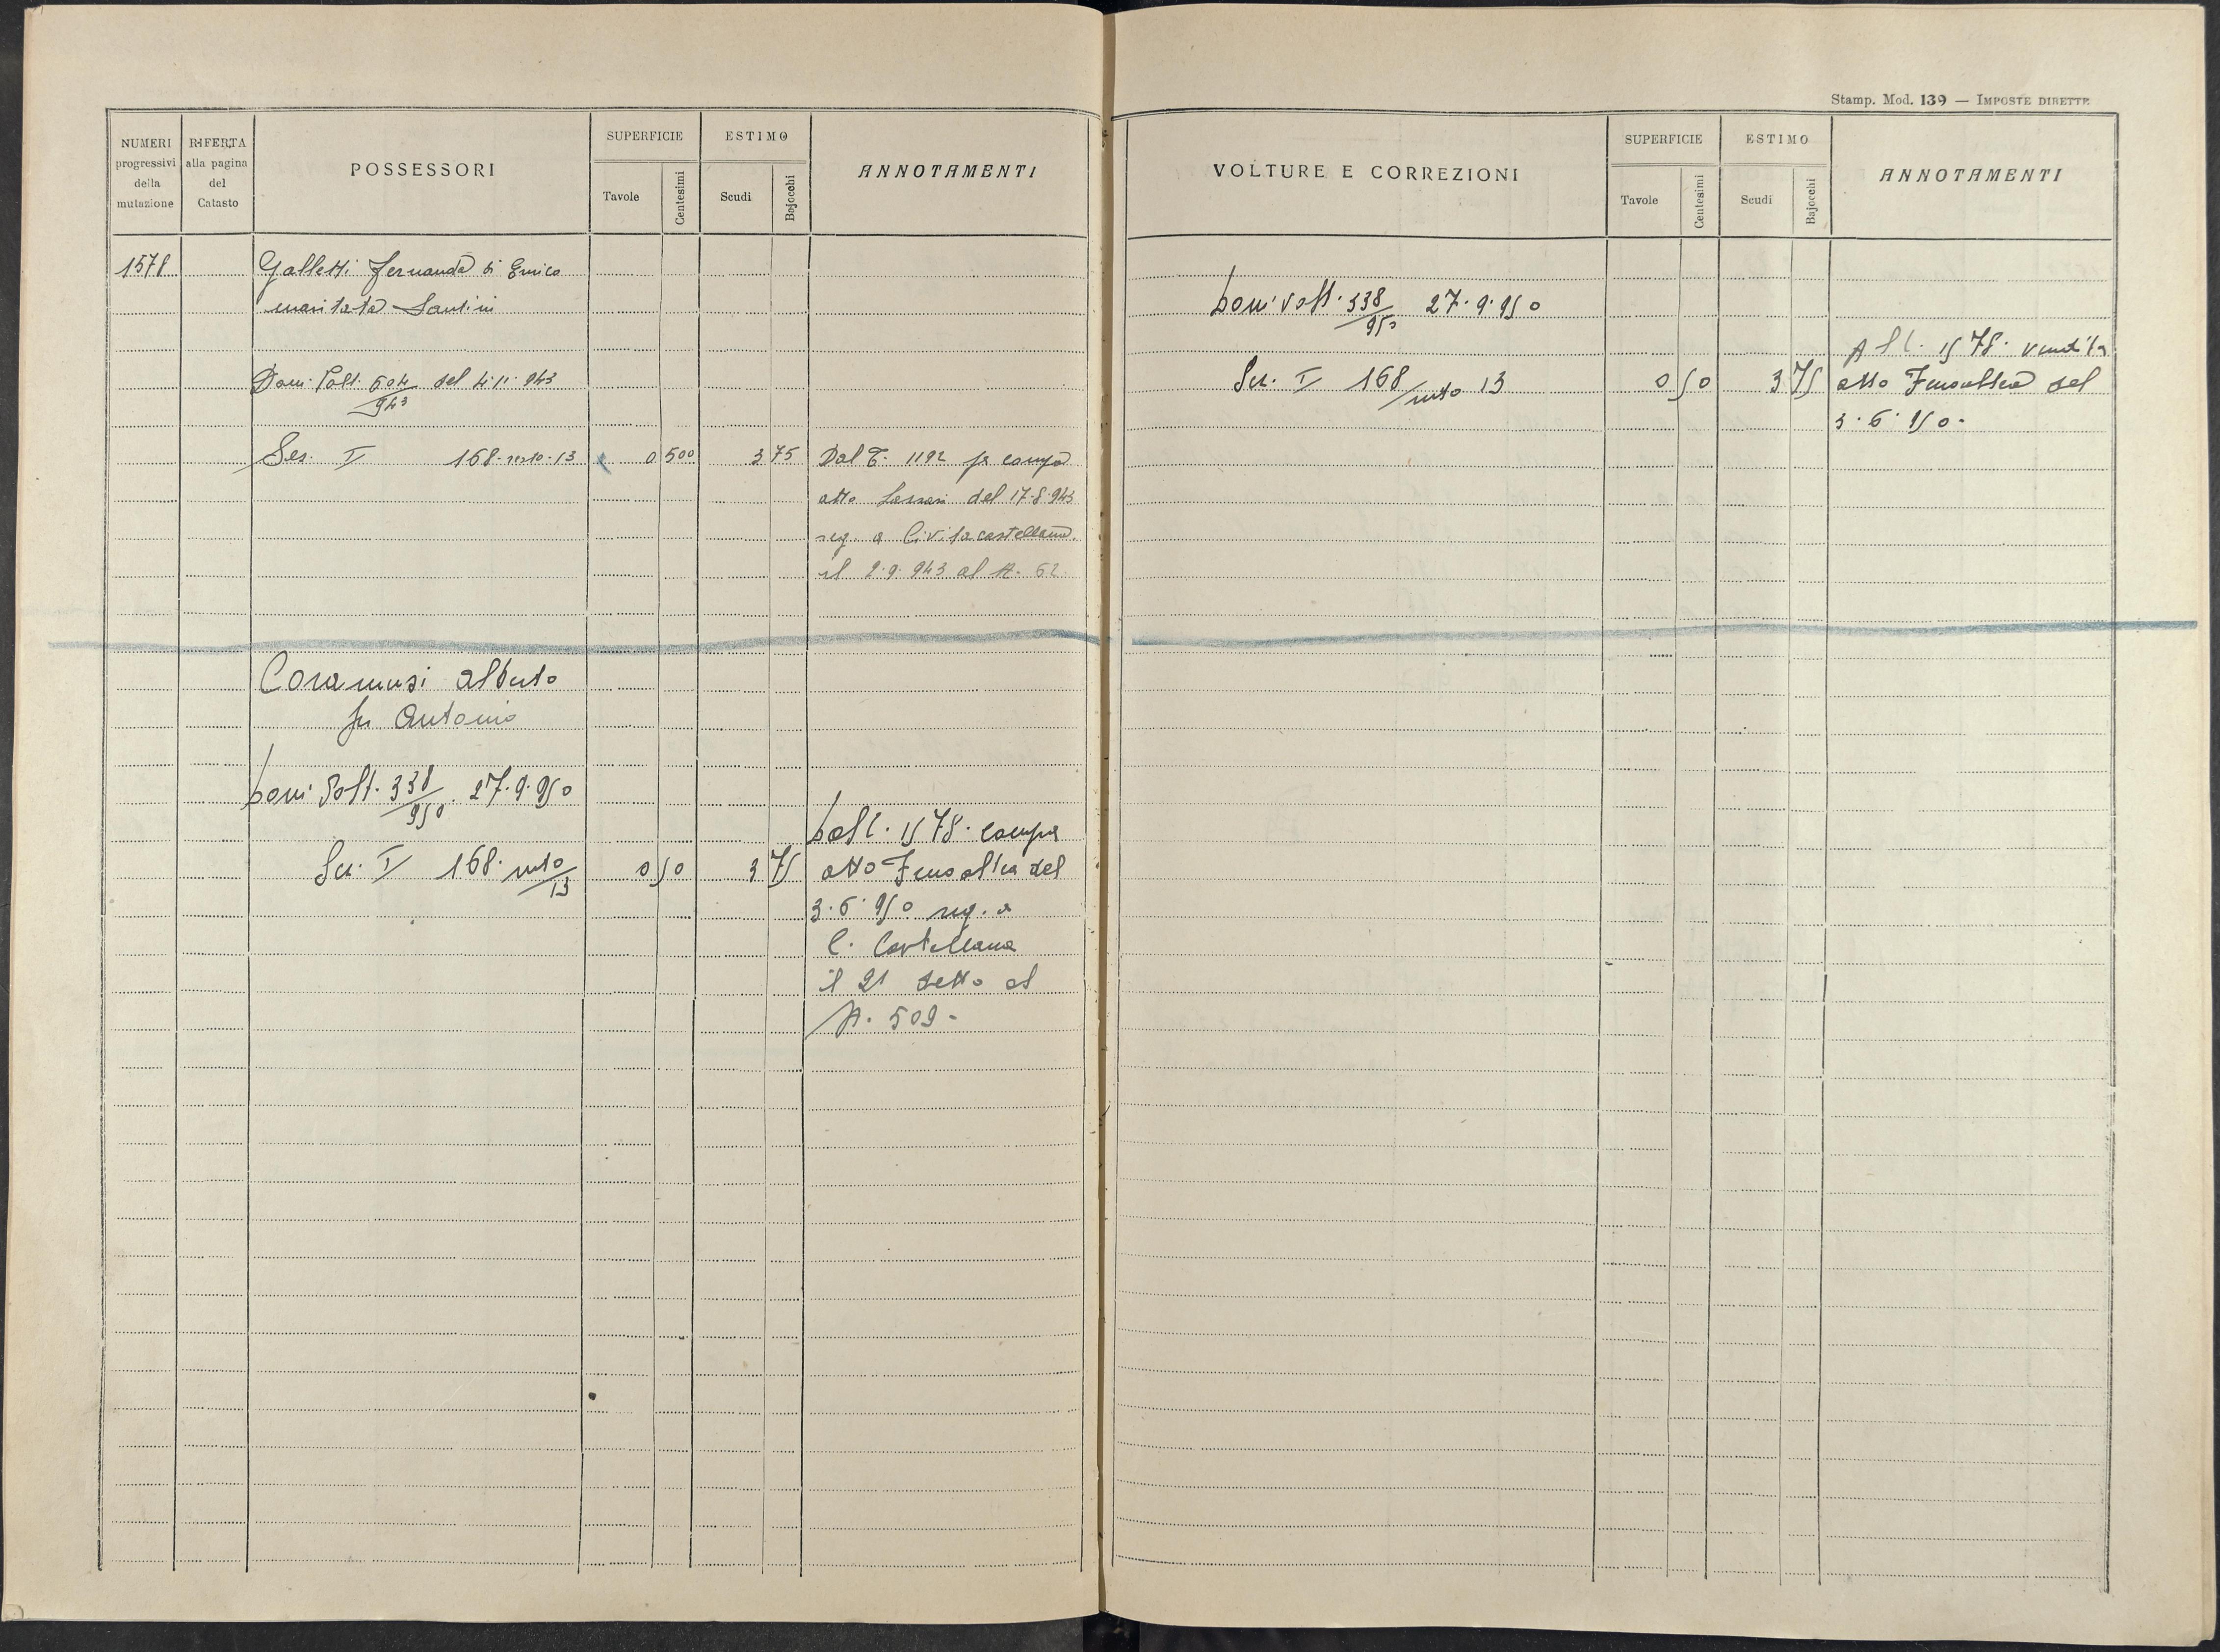 Stamp. Mod. 139 — IMPOSTE DIRETTE
NUMERI progressivi della mutazione
RIFERTA alla pagina del Catasto
POSSESSORI
SUPERFICIE
Tavole
Centesimi
ESTIMO
Scudi
Bajocchi
ANNOTAMENTI
1578
Galletti Fernanda di Enrico
maritata Santini
Dom. Volt. 604/943 del 4.11.943
Sez. I 168 resto 13 0 500 3 75 Dal C. 1192 p compa
atto del 17.8.943
reg. a Civitacastellana
il 2.9.943 al N. 62
Coramusi Alberto
fu Antonio
Dom. Volt. 338/950. 27.9.950
Dal C. 1578. compra
Sez. I 168. resto/13 0 50 3 75 atto del
3.6.950 reg. a
C. Castellana
il 21 detto al
N. 509-
VOLTURE E CORREZIONI
SUPERFICIE
Tavole
Centesimi
ESTIMO
Scudi
Bajocchi
ANNOTAMENTI
Dom. Volt. 338/950 27.9.950
Al C. 1578. vendita
Sez. I 168/resto 13 0 50 3 75 atto del
3.6.950-